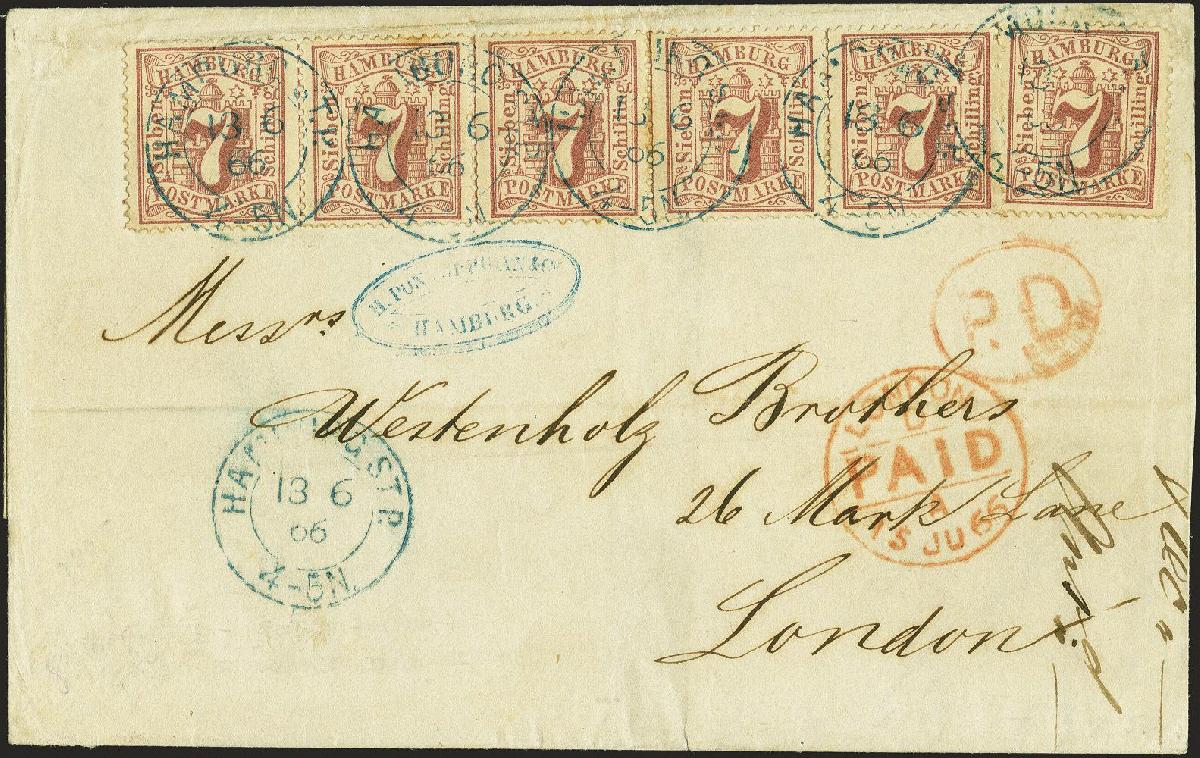 HAMBURG HAMBURG HAMBURG HAMBURG HAMBURG HAMBURG
Sieben 7 Schilling Sieben 7 Schilling Sieben 7 Schilling Sieben 7 Schilling Sieben 7 Schilling Sieben 7 Schilling
POSTMARKE POSTMARKE POSTMARKE POSTMARKE POSTMARKE POSTMARKE
13 6
66
4-5N
HAMBURG
P.D.
Messrs
Westenholz Brothers
26 Mark Lane
London
HAMBURG ST.P.
13 6
66
4-5N.
LONDON
PAID
15 JU 66